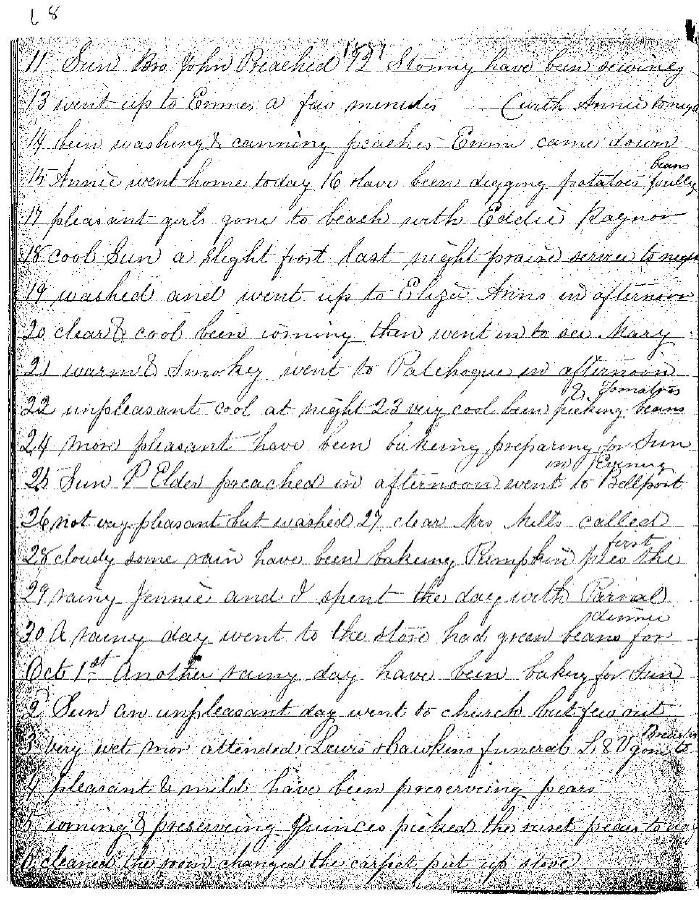 68
1881
11 Sun Bro John Preached 12 Stormy have been sewing
13 went up to Emmes a few minutes Curth Annie
14 been washing & canning peaches Emm came down
beans
15 Annie went home today 16 Have been digging potatoes pulling
17 pleasant girls gone to beach with Eddie Raynor
18 cool Sun a slight frost last night praise service to night
19 washed and went up to Eliza Anns in afternoon
20 clear & cool been ironing then went in to see Mary
21 warm & Smokey went to Patchogue in afternoon
& tomatoes
22 unpleasant cool at night 23 very cool been picking beans
24 more pleasant have been bakeing preparing for Sun
in Evening
25 Sun P Elder preached in afternoon went to Bellport
26 not very pleasant but washed 27 clear Mrs Mills called
first
28 cloudy some rain have been bakeing Pumpkin pies the
29 rainy Jennie and I spent the day with Parnel
dinner
30 A rainy day went to the store had green beans for
Oct 1st Another rainy day have been bakeing for Sun
2 Sun an unpleasant day went to church but few out
3 very wet mor attended Lewis Hawkins funeral L & V gone to
4 pleasant & mild have been preserveing pears
5 ironing & preserveing Quinces picked the ruset pears to
6 cleaned the room changed the carpet put up stove